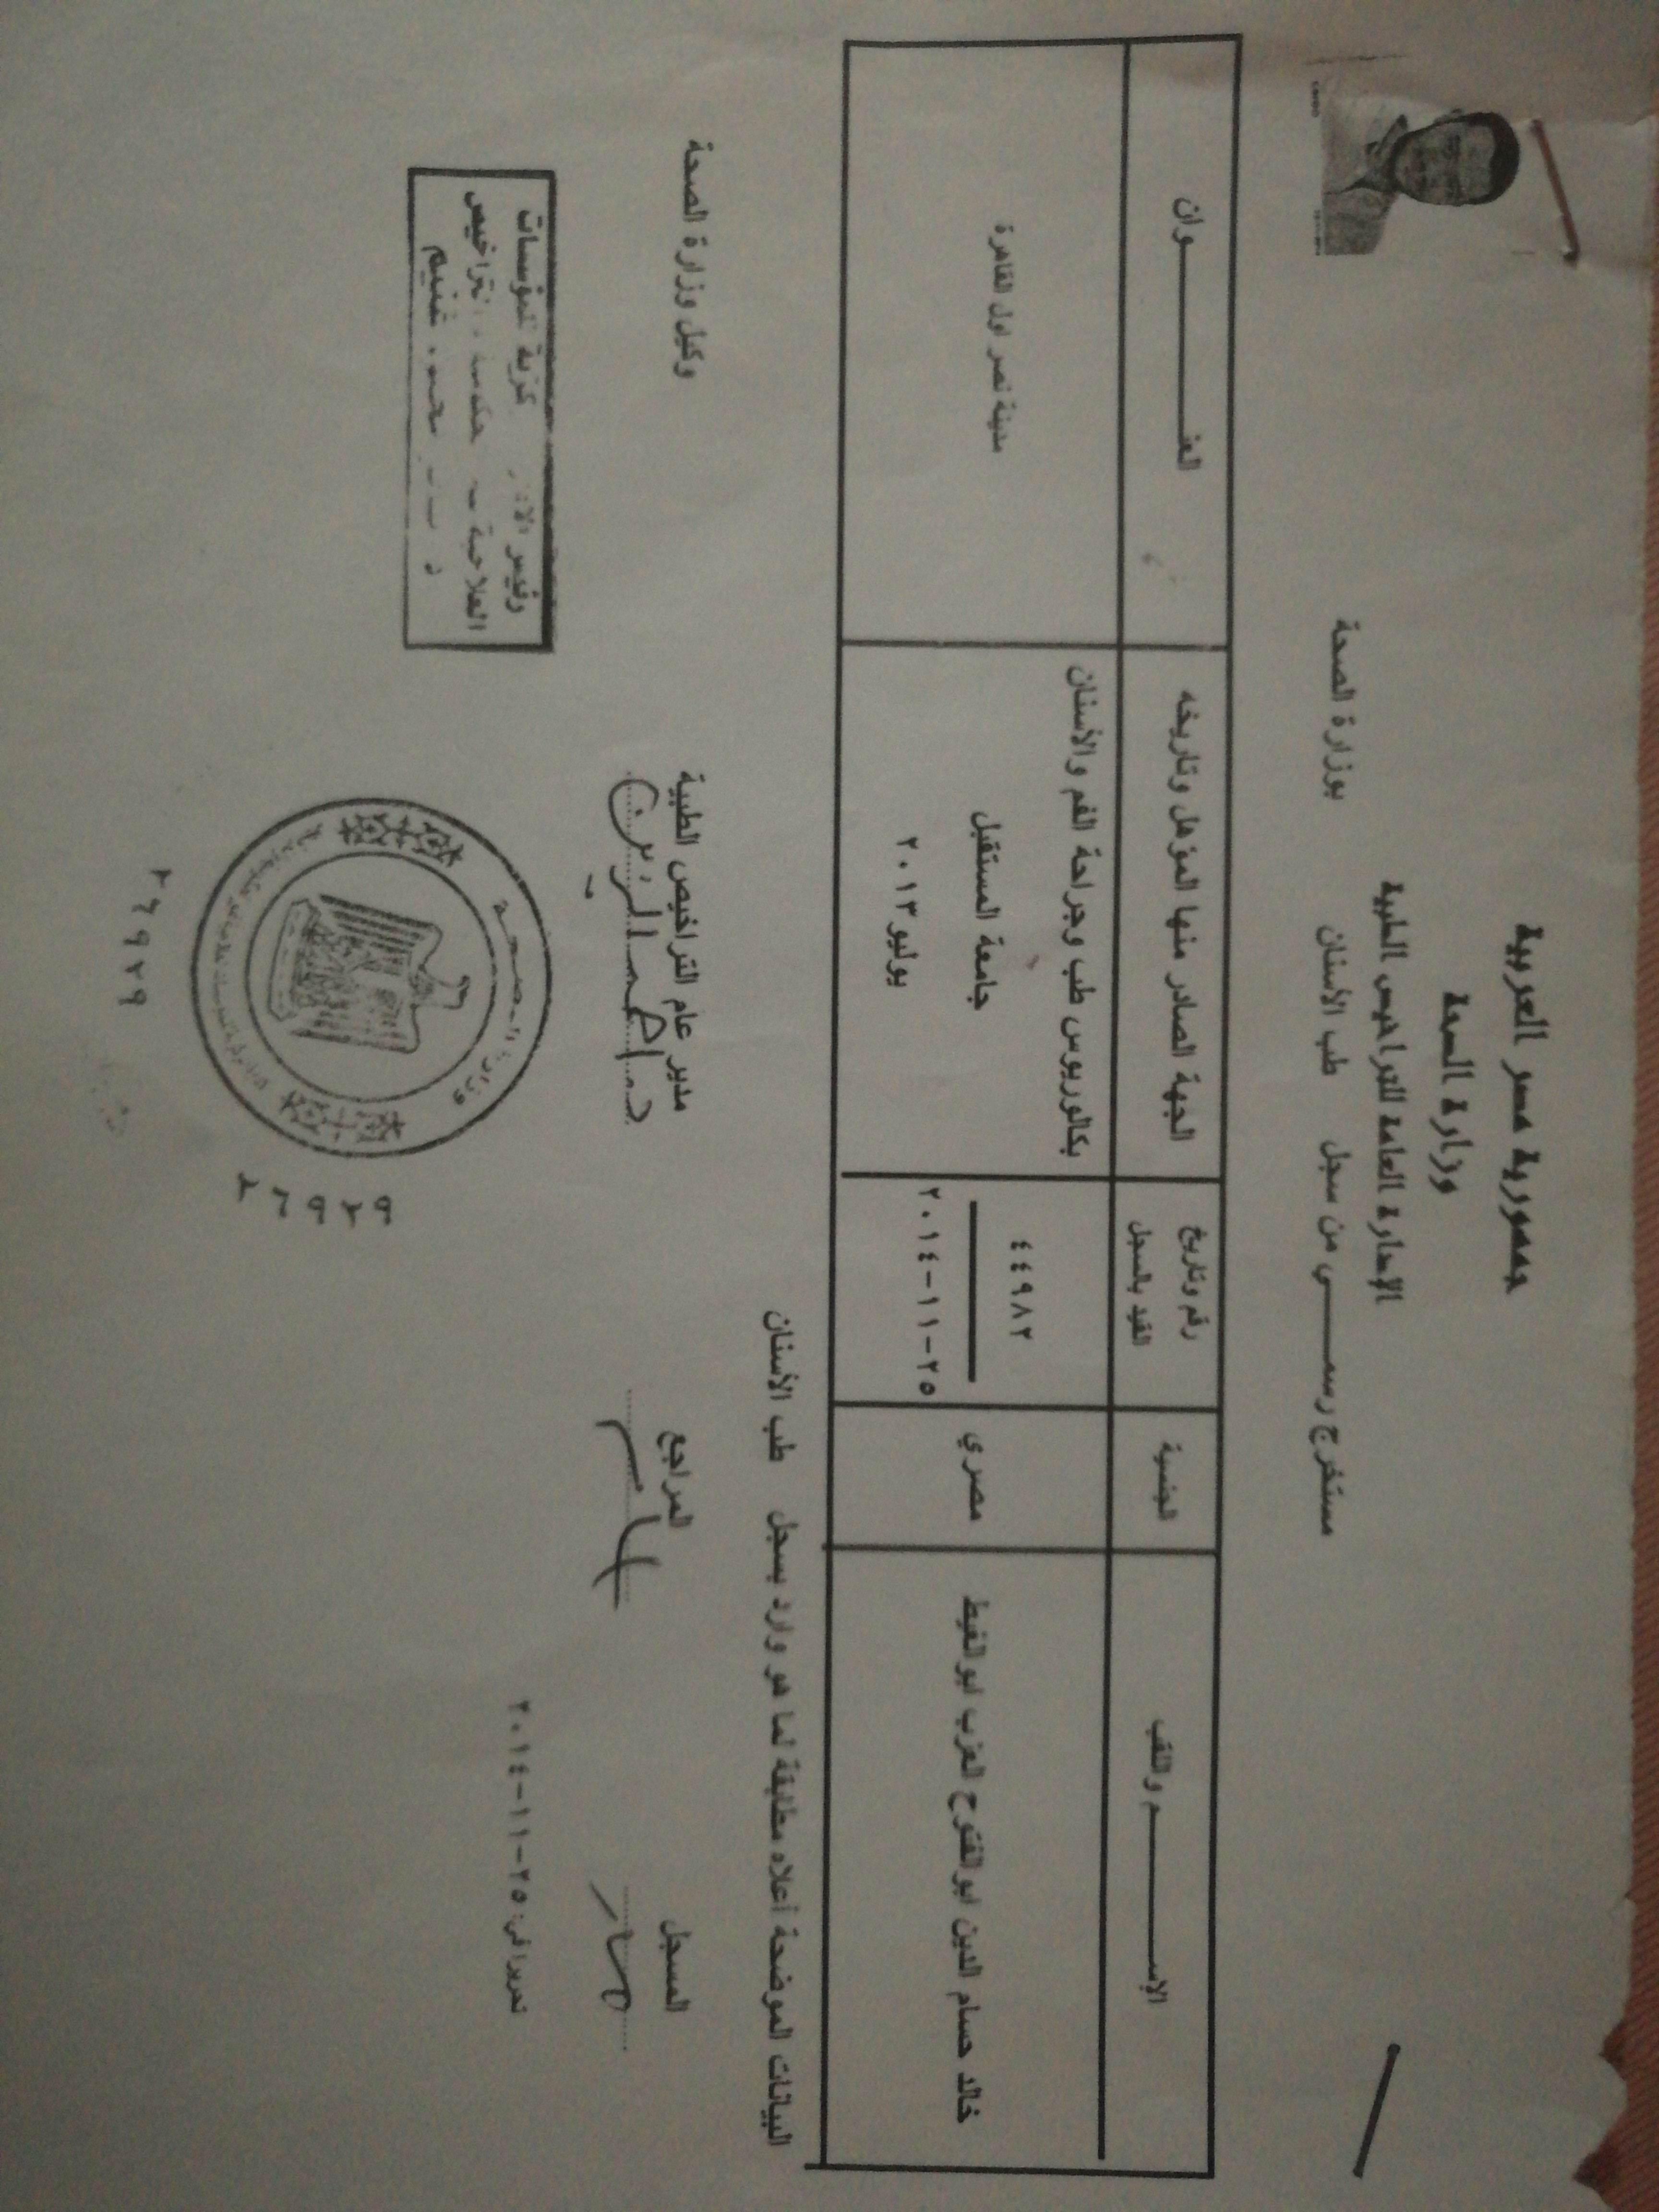 جمهورية مصر العربية
وزارة الصحة
الإدارة العامة للتراخيص الطبية
مستخرج رسمــــي من سجل طب الأسنان بوزارة الصحة
الإســــــم واللقب
الجنسية
رقم وتاريخ القيد بالسجل
الجهة الصادر منها المؤهل وتاريخه
العنــــــــوان
خالد حسام الدين ابوالفتوح العزب ابوالغيط
مصري
٤٤٩٨٢
٢٠١٤-١١-٢٥
بكالوريوس طب وجراحة الفم والأسنان
جامعة المستقبل
يوليو ٢٠١٣
مدينة نصر اول القاهرة
البيانات الموضحة أعلاه مطابقة لما هو وارد بسجل طب الأسنان
المسجل
المراجع
مدير عام التراخيص الطبية
وكيل وزارة الصحة
تحريرا في: ٢٥-١١-٢٠١٤
رئيس كزية للمؤسسات
العلاجية التراخيص
د غنيم
وزارة الصحة
٢٦٩٢٩
٢٦٩٢٩